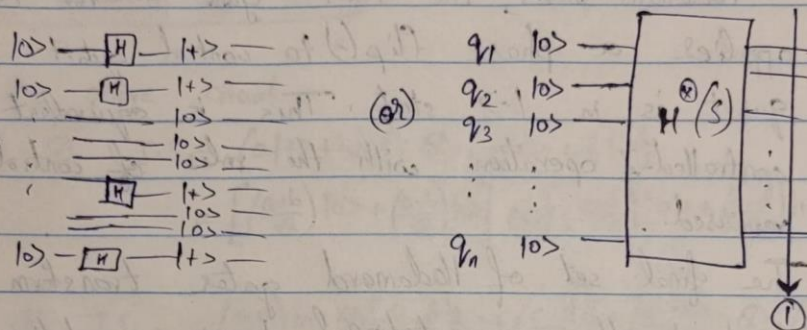 |0> H |+>
|0> H |+>
|0>
|0>
|0>
H |+>
|0>
|0>
|0> H |+>
(or)
q1 |0>
q2 |0>
q3 |0>
qn |0>
H⊗(S)
1